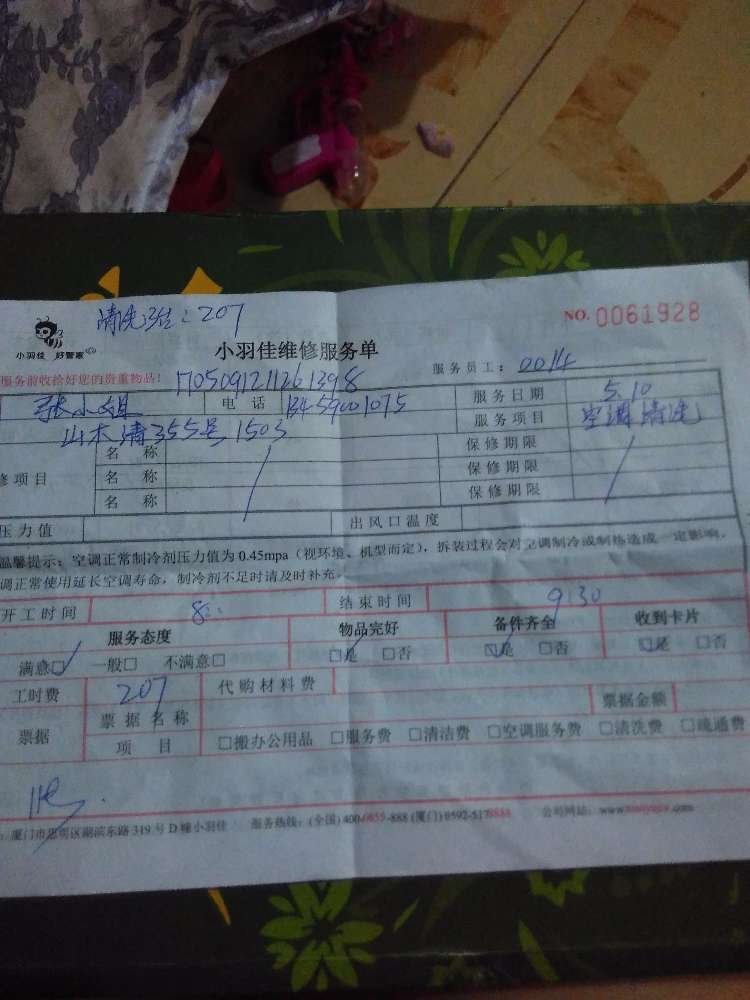 清洗 : 207
NO. 0061928
小羽佳 好管家
小羽佳维修服务单
服务员工: 0014
服务前收拾好您的贵重物品! 1705091211261398
张小姐 电话 13459001075 服务日期 5.10
355号1503 服务项目 空调清洗
名称 保修期限
修项目 名称 保修期限
名称 保修期限
压力值 出风口温度
温馨提示: 空调正常制冷剂压力值为0.45mpa (视环境、机型而定), 拆装过程会对空调制冷或制热造成一定影响。
调正常使用延长空调寿命, 制冷剂不足时请及时补充。
开工时间 8: 结束时间 9:30
服务态度 物品完好 备件齐全 收到卡片
满意☑ 一般□ 不满意□ ☑是 □否 ☑是 □否 ☑是 □否
工时费 207 代购材料费
票据 票据名称 票据金额
项目 □搬办公用品 □服务费 □清洁费 □空调服务费 □清洗费 □疏通费
: 厦门市思明区湖滨东路319号D幢小羽佳 服务热线: (全国) 400-0855-888 (厦门) 0592-5178888 公司网站: www.xiaoyujia.com